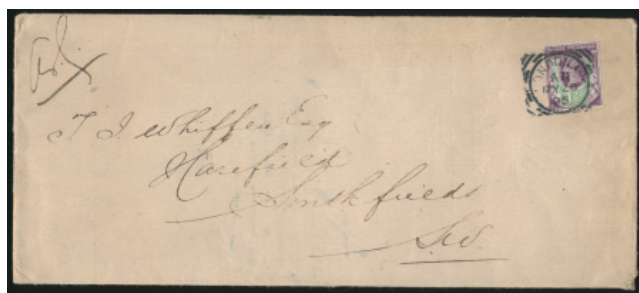 T. J. Whiffen Esq
Harefield
Southfields
S.W.